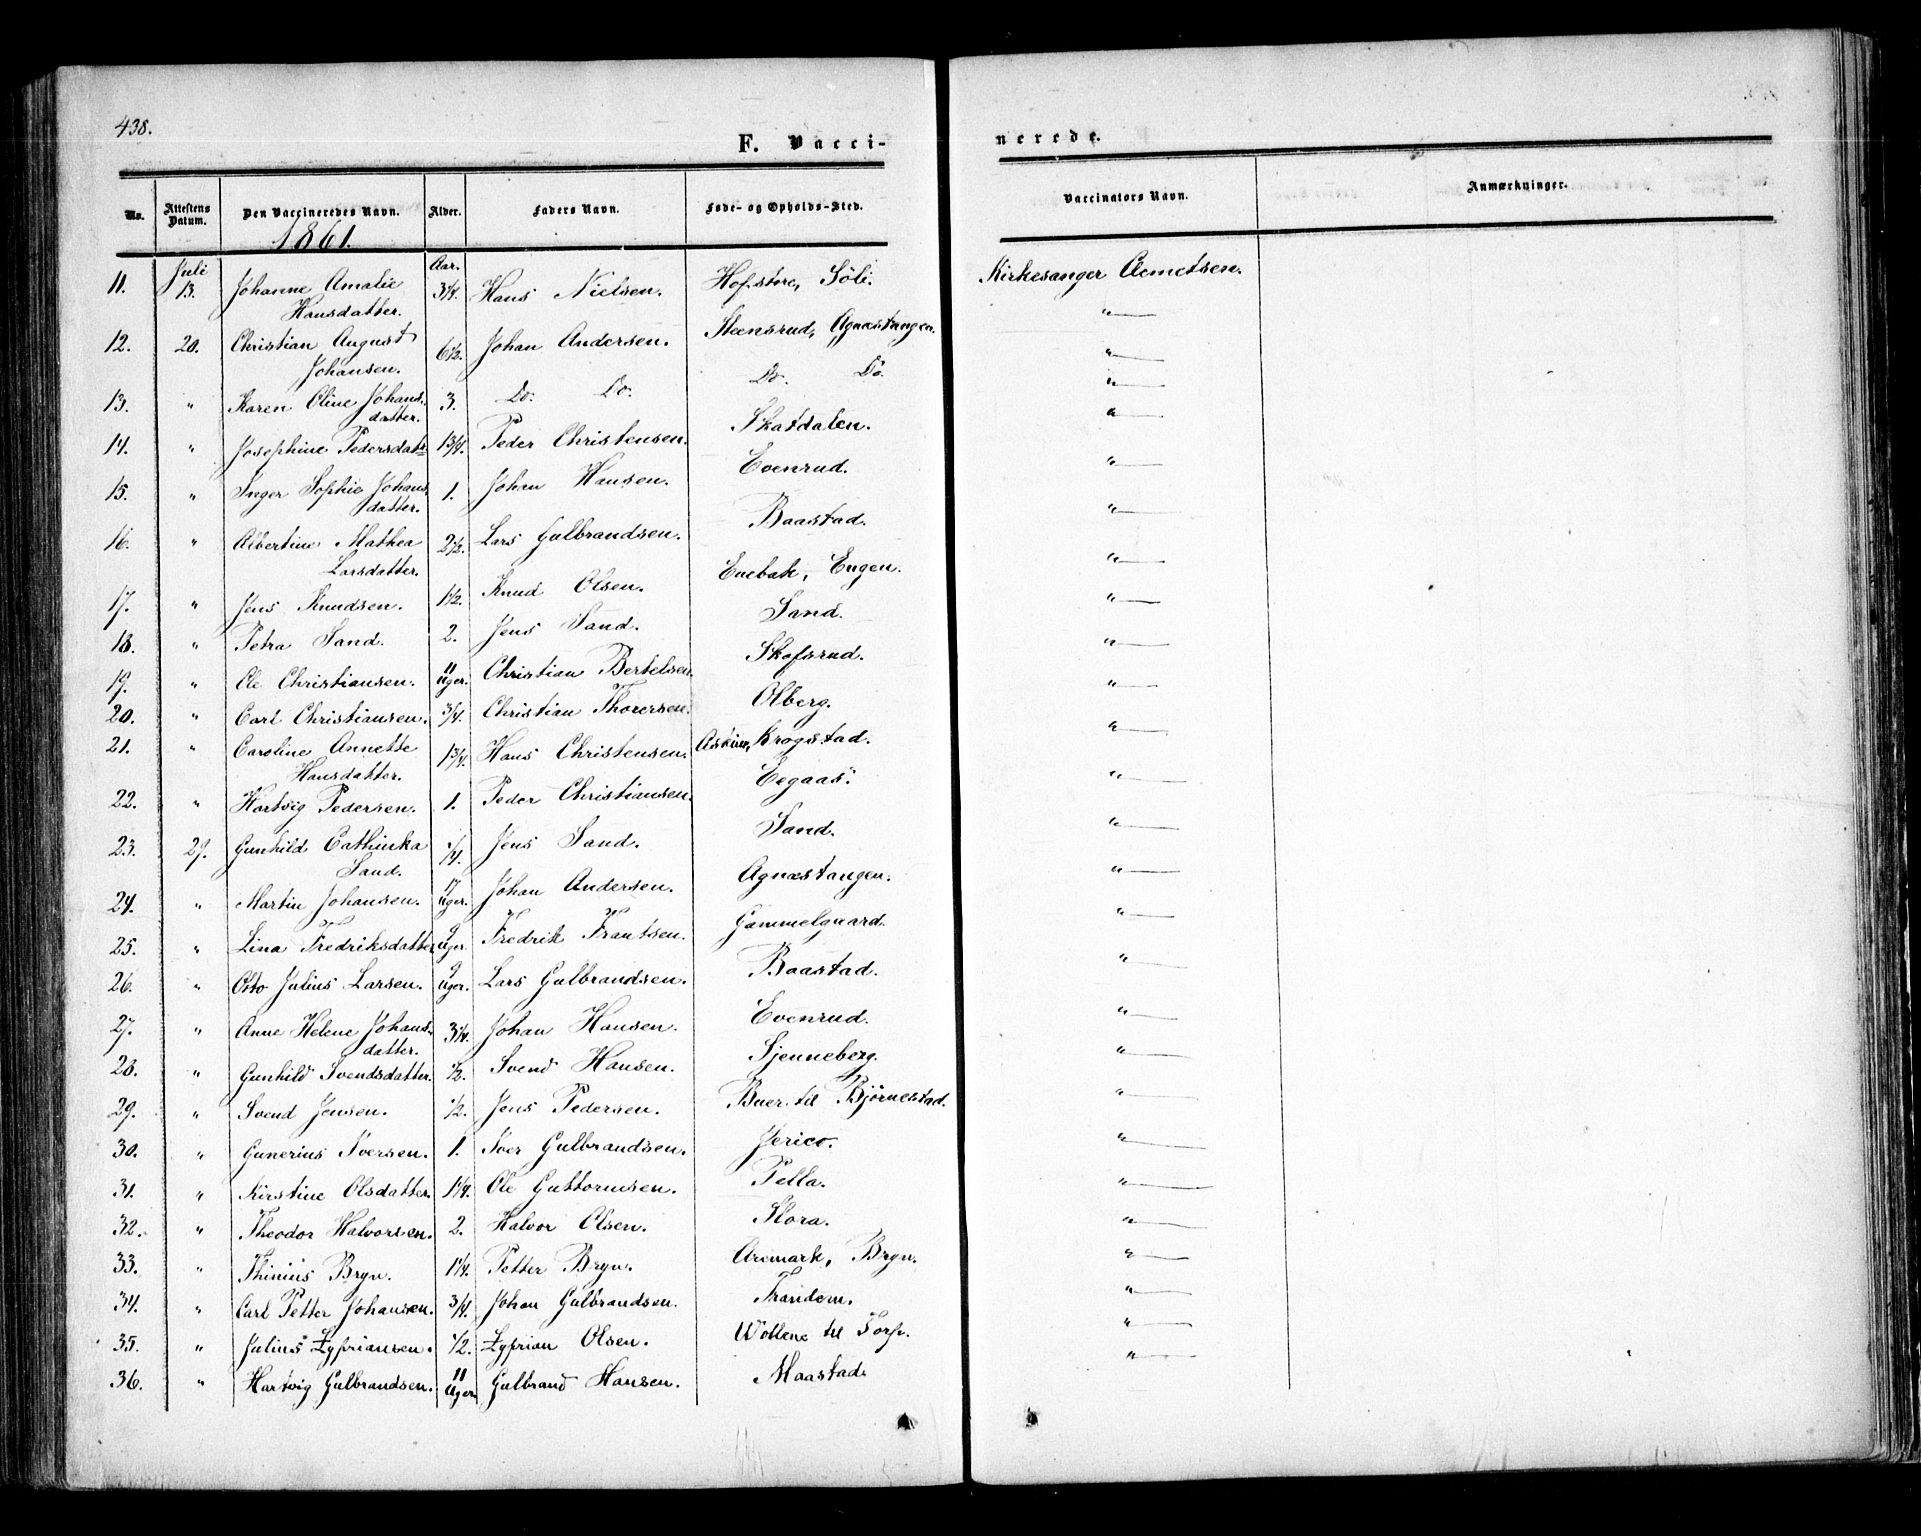 438.
F. Vacci-
nerede.
No. Attestens Datum. Den Vaccineredes Navn. Alder. Faders Navn. Føde- og Opholds-Sted. Vaccinators Navn. Anmærkninger.
1861.
Juli Aar.
11. 13. Johanne Amalie 3¼. Hans Nielsen. Hofstere, Söli. Kirkesanger
Hansdatter.
12. 20. Christian August 6½. Johan Andersen. Steensrud, Agnæstangen. "
Johansen.
13. " Karen Olive Johans- 3. Do. Do. Do. Do. "
datter.
14. " Josephine Pedersdatr 1¾. Peder Christensen. Skatdalen. "
15. " Inger Sophie Johans- 1. Johan Hansen. Evenrud. "
datter.
16. " Albertine Mathea 2½. Lars Gulbrandsen. Baastad. "
Larsdatter.
17. " Jens Knudsen. 1½. Knud Olsen. Enebak, Engen. "
18. " Petra Sand. 2. Jens Sand. Sand. "
19. " Ole Christiansen. 11 Uger. Christian Bertelsen. Skofsrud. "
20. " Carl Christiansen. ¾. Christian Thorersen. Olberg. "
21. " Caroline Annette 1¾. Hans Christensen. Askim, Krogstad. "
Hansdatter.
22. " Hartvig Pedersen. 1. Peder Christiansen. Eegaas. "
23. 29. Gunhild Cathinka ¼. Jens Sand. Sand. "
Sand.
24. " Martin Johansen. 17 Uger. Johan Andersen. Agnæstangen. "
25. " Lina Fredriksdatter 9 Uger. Fredrik Frantsen. Gammelguard. "
26. " Otto Julius Larsen. 9 Uger. Lars Gulbrandsen. Baastad. "
27. " Anne Helene Johans- 3¼. Johan Hansen. Evenrud. "
datter.
28. " Gunhild Svendsdatter. ½. Svend Hansen. Sjenneberg. "
29. " Svend Jensen. ½. Jens Pedersen. Buer til Bjørnestad. "
30. " Gunerius Iversen. 1. Iver Gulbrandsen. Jerico. "
31. " Kirstine Olsdatter. 1¼. Ole Guttormsen. Pella. "
32. " Theodor Halvorsen. 2. Halvor Olsen. Slora. "
33. " Thinius Bryn. 1¼. Petter Bryn. Aremark, Bryn. "
34. " Carl Petter Johansen. ¾. Johan Gulbrandsen. Trandem. "
35. " Julius Zypriansen. ½. Zyprian Olsen. Wollene til Torp. "
36. " Hartvig Gulbrandsen. 11 Uger. Gulbrand Hansen. Maastad. "